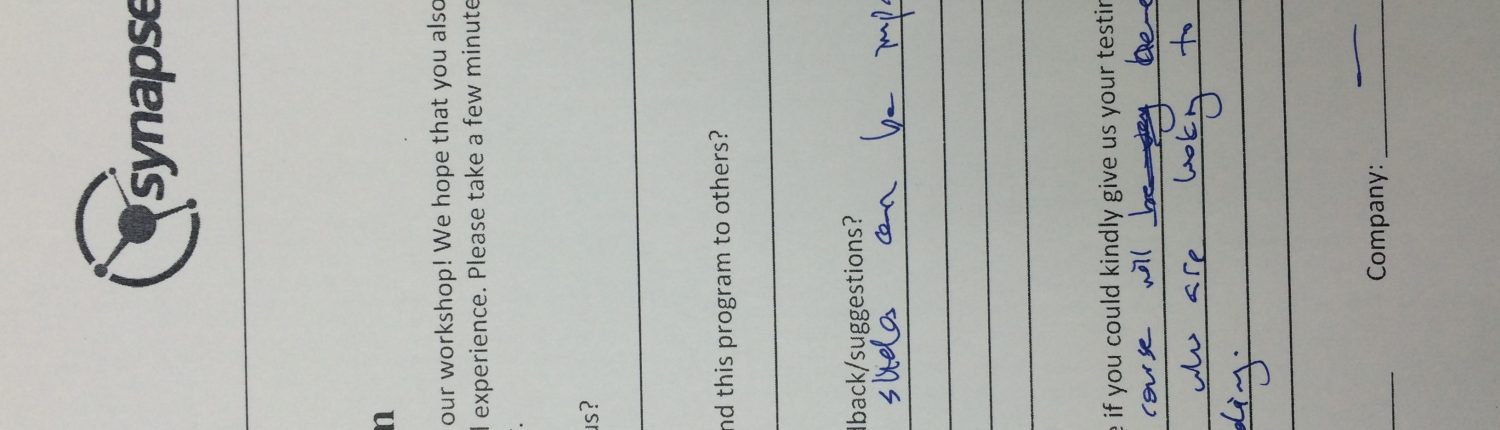 synapse
n
our workshop! We hope that you also
experience. Please take a few minute
us?
nd this program to others?
dback/suggestions?
slides can be
if you could kindly give us your testin
course will be
who are looking to
ding.
Company: —